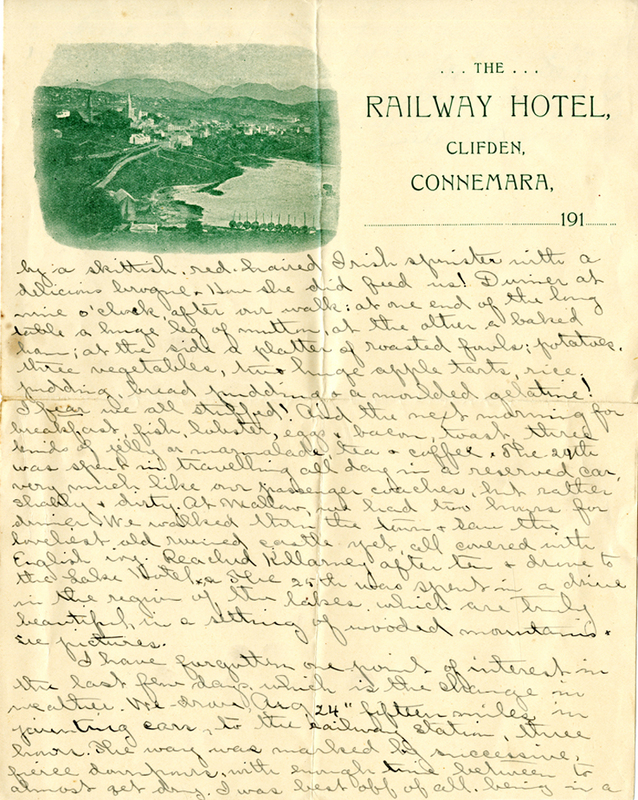 ... THE ...
RAILWAY HOTEL,
CLIFDEN,
CONNEMARA,
191
by a skittish, red-haired Irish spinster with a
delicious brogue. How she did feed us! Dinner at
nine o'clock, after our walk: at one end of the long
table a huge leg of mutton, at the other a baked
ham; at the side a platter of roasted fowls; potatoes,
three vegetables, two huge apple tarts, rice
pudding, bread pudding & a moulded gelatine!
I fear we all stuffed! And the next morning for
breakfast, fish, lobster, eggs & bacon, toast, three
kinds of jelly or marmalade, tea & coffee. The 24th
was spent in travelling all day in a reserved car,
very much like our passenger coaches, but rather
shabby & dirty. At Mallow, we had two hours for
dinner. We walked thru the town & saw the
loveliest old ruined castle yet, all covered with
English ivy. Reached Killarney after ten & drove to
the Lake Hotel. The 25th was spent in a drive
in the region of the lakes, which are truly
beautiful, in a setting of wooded mountains.
pictures.
I have forgotten one point of interest in
the last few days, which is the change in
weather. We drove, Aug. 24" fifteen miles, in
jaunting cars, to the railway station, three
hours. The way was marked by successive,
fierce downpours, with enough time between to
almost get dry. I was best off of all, being in a